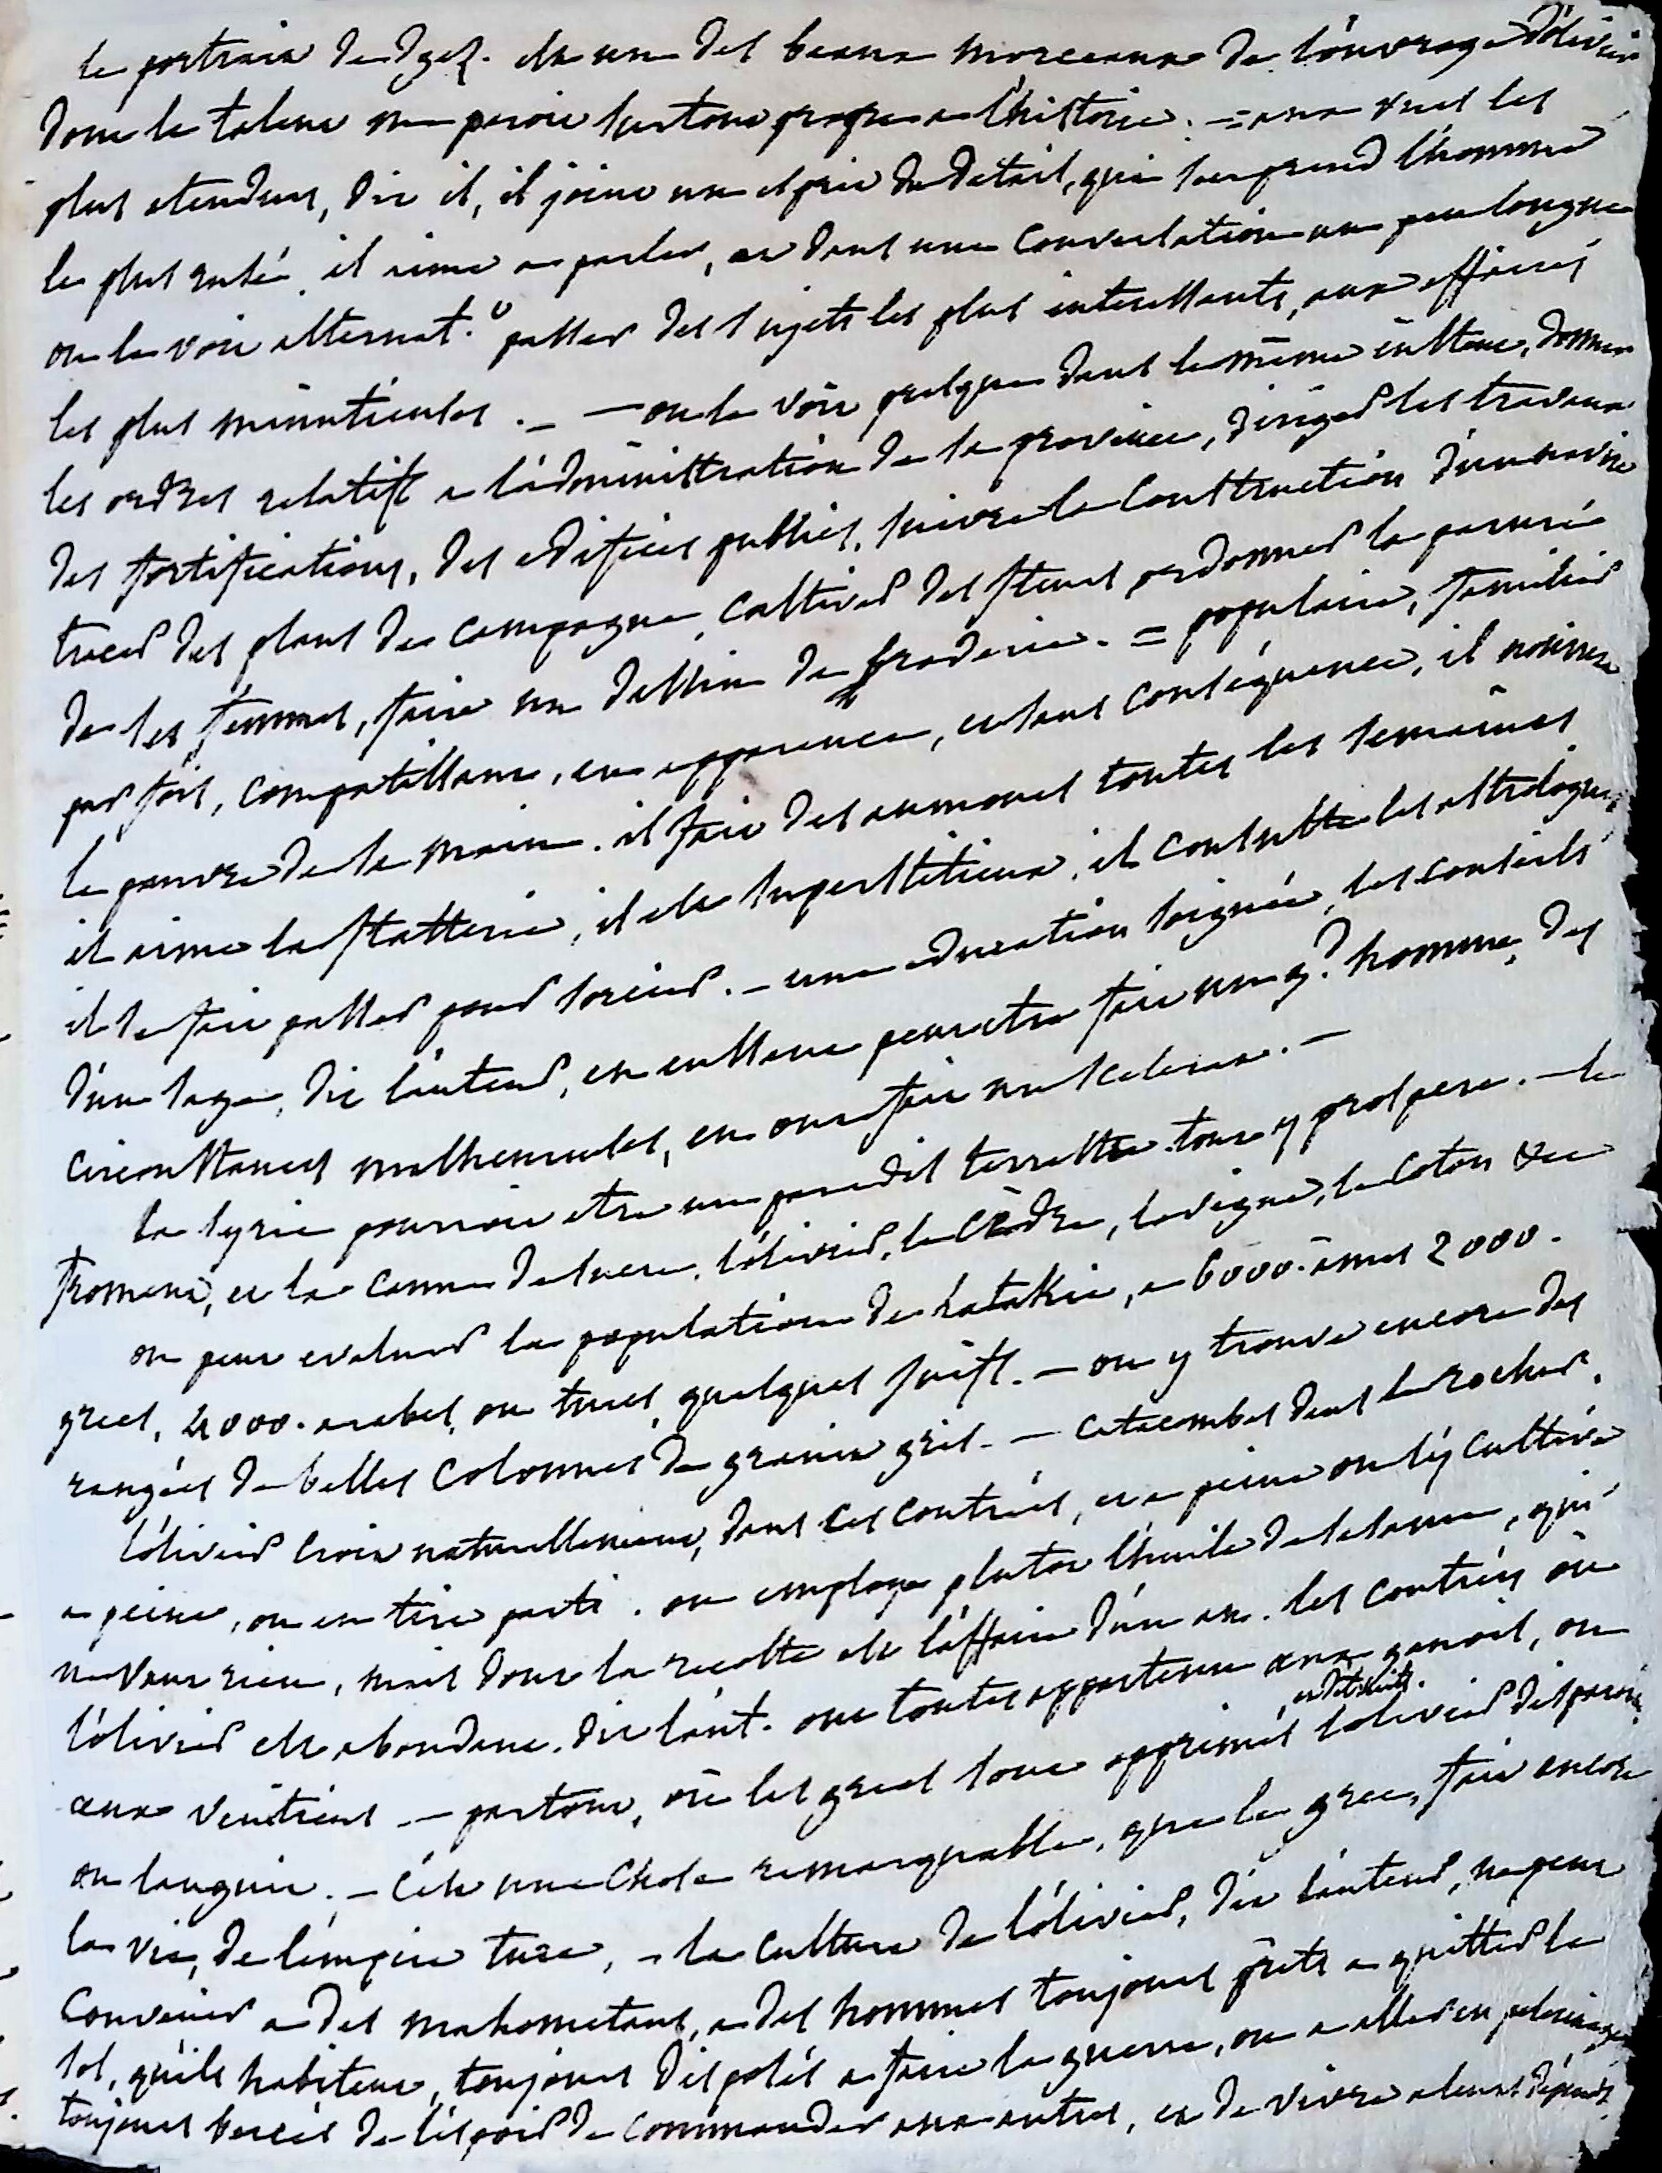 le portrait de dgez. est un des beaux morceaux de l'ouvrage d'olivier
dont le talent me paroit surtout propre a l'histoire. = aux vues les
plus etendues, dit il, il joint un esprit de détail, qui surprend l'homme
le plus rusé. il aime a parler, et dans une conversation un peu longue
on le voit alternat.t passer des sujets les plus interessants, aux affaires
les plus minutieuses. — on le voit presque dans le même instant, donner
les ordres relatifs a l'administration de la province, diriger les travaux
des fortifications, des edifices publics, suivre la construction d'un navire
tracer des plans de campagne, cultiver des fleurs, ordonner la parure
de ses femmes, faire un dessin de broderie. = populaire, familier
par fois, compatissant, en apparence, et sans conséquence, il nourrit
le pauvre de sa main. il fait des aumones toutes les semaines
il aime la flatterie, il est superstitieux, il consulte les astrologues,
il se fait passer pour sorcier. — une education soignée, les conseils
d'un sage, dit l'auteur, en eussent peut etre fait un gd. homme, des
circonstances malheureuses, en ont fait un scelerat. —
la syrie pourroit etre un paradis terrestre. tout y prospere. — le
froment, et la canne de sucre. l'olivier, le cèdre, la vigne, le coton &c
on peut evaluer la population de latakie, a 6000. âmes 2000.
grecs, 4000. arabes, ou turcs, quelques juifs. — on y trouve encore des
rangées de belles colonnes de granit gris. — catacombes dans le rocher.
l'olivier croit naturellement, dans ces contrées, et a peine on l'y cultive
a peine, on en tire parti. on employe plutot l'huile de sesame, qui
ne vaut rien, mais dont la recolte est l'affaire d'un an. les contrées où
l'olivier est abondant. dit l'aut. ont toutes appartenu aux genois, ou
aux venitiens — partout, où les grecs sont opprimés et détruits. l'olivier disparoit,
ou languit. — c'est une chose remarquable, que le grec, fait encore
la vie, de l'empire turc, — la culture de l'olivier, dit l'auteur, ne peut
convenir a des mahometans, a des hommes toujours prêts a quitter le
sol, qu'ils habitent, toujours disposés a faire la guerre, ou a aller en pelerinage
toujours bercés de l'espoir de commander aux autres, et de vivre a leurs dépends.